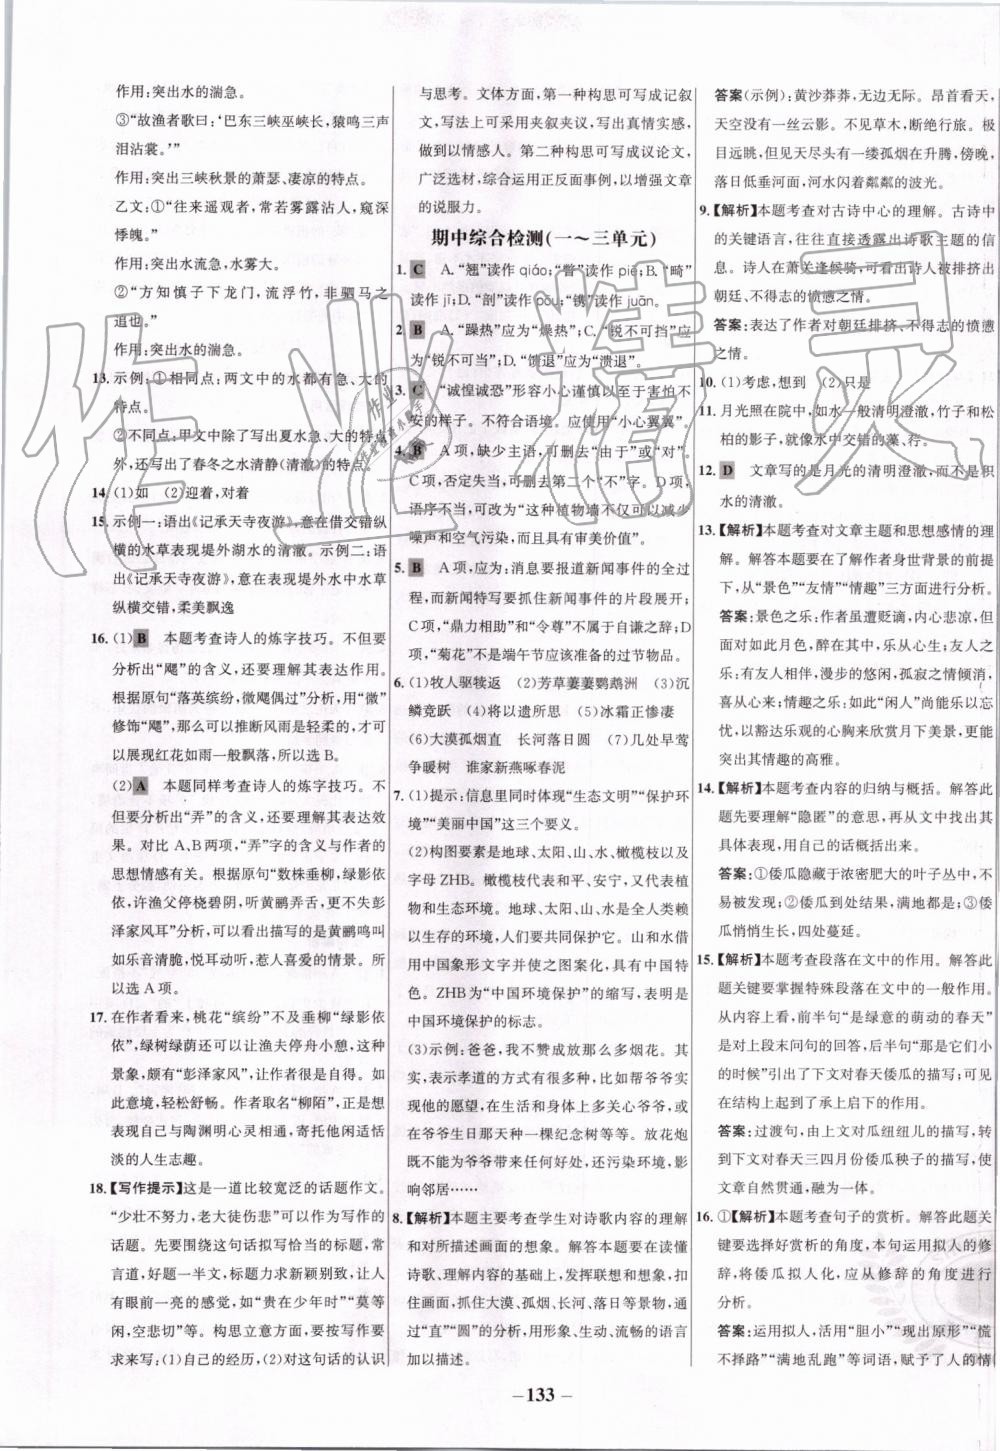 作用:突出水的湍急。
③“故渔者歌曰:‘巴东三峡巫峡长,猿鸣三声
泪沾裳。’”
作用:突出三峡秋景的萧瑟、凄凉的特点。
乙文:①“往来遥观者,常若雾露沾人,窥深
悸魄。”
作用:突出水流急,水雾大。
②“方知慎子下龙门,流浮竹,非驷马之
追也。”
作用:突出水的湍急。
13. 示例:①相同点:两文中的水都有急、大的
特点。
②不同点:甲文中除了写出夏水急、大的特点
外,还写出了春冬之水清静(清澈)的特点。
14. (1)如 (2)迎着,对着
15. 示例一:语出《记承天寺夜游》,意在借交错纵
横的水草表现堤外湖水的清澈。示例二:语
出《记承天寺夜游》,意在表现堤外水中水草
纵横交错,柔美飘逸
16. (1) B 本题考查诗人的炼字技巧。不但要
分析出“飓”的含义,还要理解其表达作用。
根据原句“落英缤纷,微飓偶过”分析,用“微”
修饰“飓”,那么可以推断风雨是轻柔的,才可
以展现红花如雨一般飘落,所以选B。
(2) A 本题同样考查诗人的炼字技巧。不
但要分析出“弄”的含义,还要理解其表达效
果。对比A、B两项,“弄”字的含义与作者的
思想情感有关。根据原句“数株垂柳,绿影依
依,许渔父停桡碧阴,听黄鹂弄舌,更不失彭
泽家风耳”分析,可以看出描写的是黄鹂鸣叫
如乐音清脆,悦耳动听,惹人喜爱的情景。所
以选A项。
17. 在作者看来,桃花“缤纷”不及垂柳“绿影依
依”,绿树绿荫还可以让渔夫停舟小憩,这种
景象,颇有“彭泽家风”,让作者很是自得。如
此意境,轻松舒畅。作者取名“柳陌”,其实是
表白自己与陶渊明心灵相通,寄托他闲适恬
淡的人生志趣。
18.【写作提示】这是一道比较宽泛的话题作文。
“少壮不努力,老大徒伤悲”可以作为写作的
话题。先要围绕这句话拟写恰当的标题,常
言道,好题一半文,标题力求新颖别致,让人
有眼前一亮的感觉,如“贵在少年时”“莫等
闲,空悲切”等。构思立意方面,要按写作要
求来写:(1)自己的经历,(2)对这句话的认识
与思考。文体方面,第一种构思可写成记叙
文,写法上可采用夹叙夹议,写出真情实感,
做到以情感人。第二种构思可写成议论文,
广泛选材,综合运用正反面事例,以增强文章
的说服力。
期中综合检测(一~三单元)
1. C A.“翘”读作 qiáo;“瞥”读作 piē;B.“畸”
读作 jī;D.“剖”读作 pōu;“镌”读作 juān。
2. B A.“躁热”应为“燥热”;C.“锐不可挡”应
为“锐不可当”;D.“馈退”应为“溃退”。
3. C “诚惶诚恐”形容小心谨慎以至于害怕不
安的样子。不符合语境。应用“小心翼翼”。
4. B A项,缺少主语,可删去“由于”或“对”。
C项,否定失当,可删去第二个“不”字。D项,
语序不当,可改为“这种植物墙不仅可以减少
噪声和空气污染,而且具有审美价值”。
5. B A项,应为:消息要报道新闻事件的全过
程,而新闻特写要抓住新闻事件的片段展开;
C项,“鼎力相助”和“令尊”不属于自谦之辞;D
项,“菊花”不是端午节应该准备的过节物品。
6. (1)牧人驱犊返 (2)芳草萋萋鹦鹉洲 (3)沉
鳞竞跃 (4)将以遗所思 (5)冰霜正惨凄
(6)大漠孤烟直 长河落日圆 (7)几处早莺
争暖树 谁家新燕啄春泥
7. (1)提示:信息里同时体现“生态文明”“保护环
境”“美丽中国”这三个要义。
(2)构图要素是地球、太阳、山、水、橄榄枝以及
字母ZHB。橄榄枝代表和平、安宁,又代表植
物和生态环境。地球、太阳、山、水是全人类赖
以生存的环境,人们要共同保护它。山和水借
用中国象形文字并使之图案化,具有中国特
色。ZHB为“中国环境保护”的缩写,表明是
中国环境保护的标志。
(3)示例:爸爸,我不赞成放那么多烟花。其
实,表示孝道的方式有很多种,比如帮爷爷实
现他的愿望,在生活和身体上多关心爷爷,或
在爷爷生日那天种一棵纪念树等等。放花炮
既不能为爷爷带来快乐,还污染环境,更影
响邻居……
8.【解析】本题主要考查学生对诗歌内容的理解
和对所描述画面的想象。解答本题要在读懂
诗歌、理解内容的基础上,发挥联想和想象,扣
住画面,抓住大漠、孤烟、长河、落日等景物,通
过“直”“圆”的分析,用形象、生动、流畅的语言
加以描述。
答案(示例):黄沙莽莽,无边无际。昂首看天,
天空没有一丝云影。不见草木,断绝行旅。极
目远眺,但见天尽头有一缕孤烟在升腾,傍晚,
落日低垂河面,河水闪着粼粼的波光。
9.【解析】本题考查对古诗中心的理解。古诗中
的关键语言,往往直接透露出诗歌主题的信
息。诗人在萧关逢候骑,可看出诗人被排挤出
朝廷、不得志的愤懑之情。
答案:表达了作者对朝廷排挤、不得志的愤懑
之情。
10. (1)考虑,想到 (2)只是
11. 月光照在院中,如水一般清明澄澈,竹子和松
柏的影子,就像水中交错的藻、荇。
12. D 文章写的是月光的清明澄澈,而不是积
水的清澈。
13.【解析】本题考查对文章主题和思想感情的理
解。解答本题要在了解作者身世背景的前提
下,从“景色”“友情”“情趣”三方面进行分析。
答案:景色之乐:作者虽遭贬谪,内心悲凉,但
面对如此月色,醉在其中,乐从心生;友人之
乐:同是天涯沦落人,漫步的悠闲,孤寂之情倾消,
喜从心来;情趣之乐:如此“闲人”尚能乐以忘
忧,以豁达乐观的心胸来欣赏月下美景,更能突
出其情趣的高雅。
14.【解析】本题考查内容的归纳与概括。解答此
题先要理解“隐匿”的意思,再从文中找出其
具体表现,用自己的话概括出来。
答案:①倭瓜隐藏于浓密肥大的叶子丛中,不
易被发现;②倭瓜到处结果,满地都是;③倭
瓜悄悄生长,四处蔓延。
15.【解析】本题考查段落在文中的作用。解答此
题关键要掌握特殊段落在文中的一般作用。
从内容来看,前半句“是绿意的萌动的春天”
是对上段末问句的回答,后半句“那是它们小
的时候”引出了下文对春天倭瓜的描写;可见
在结构上起到了承上启下的作用。
答案:过渡句,由上文对瓜纽纽儿的描写,转
到下文对春天三四月份倭瓜秧子的描写,使
文章自然贯通,融为一体。
16. ①【解析】本题考查句子的赏析。解答此题关
键要选择好赏析的角度,本句运用拟人的修
辞,将倭瓜拟人化,应从修辞的角度进行
分析。
答案:运用拟人,活用“胆小”“现出原形”“慌
不择路”“满地乱跑”等词语,赋予了人的情
– 133 –